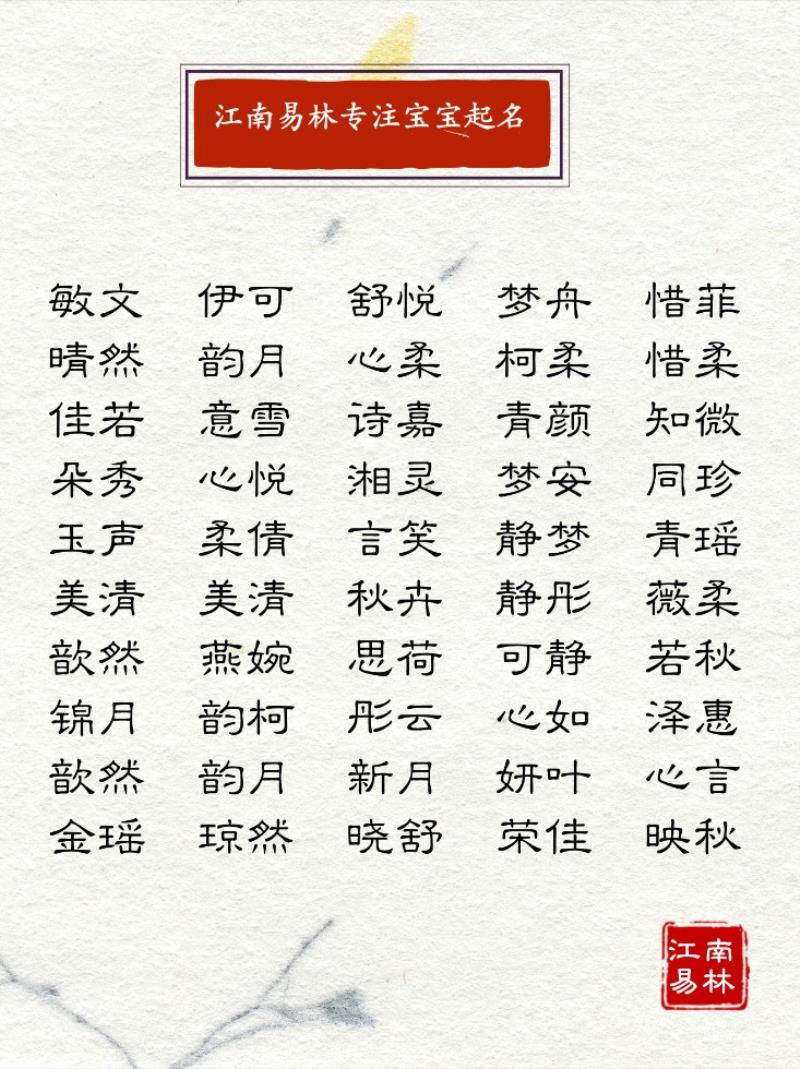 江南易林专注宝宝起名
敏文 伊可 舒悦 梦舟 惜菲
晴然 韵月 心柔 柯柔 惜柔
佳若 意雪 诗嘉 青颜 知微
朵秀 心悦 湘灵 梦安 同珍
玉声 柔倩 言笑 静梦 青瑶
美清 美清 秋卉 静彤 薇柔
歆然 燕婉 思荷 可静 若秋
锦月 韵柯 彤云 心如 泽惠
歆然 韵月 新月 妍叶 心言
金瑶 琼然 晓舒 荣佳 映秋
江南
易林